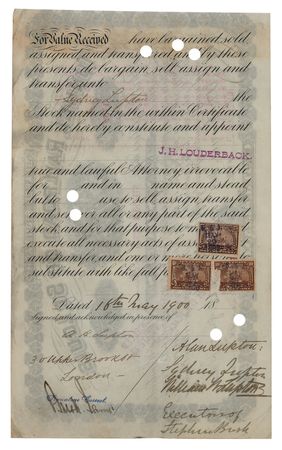 For Value Received have bargained, sold,
assigned and transferred and by these
presents do bargain, sell, assign and
transfer unto
Sydney Lupton the
Stock named in the within Certificate
and do hereby constitute and appoint
J. H. LOUDERBACK
true and lawful Attorney irrevocable
for and in name and stead
but to use to sell assign transfer
and set over all or any part of the said
stock, and for that purpose to make and
execute all necessary acts of assignment
and transfer and one or more persons to
substitute with like full power
Dated 18th May 1900 18
Signed and acknowledged in presence of
Lupton
Alan Lupton:
Sydney Lupton
30 Upper Brook St
London
William Lupton
Executors of
Stephen